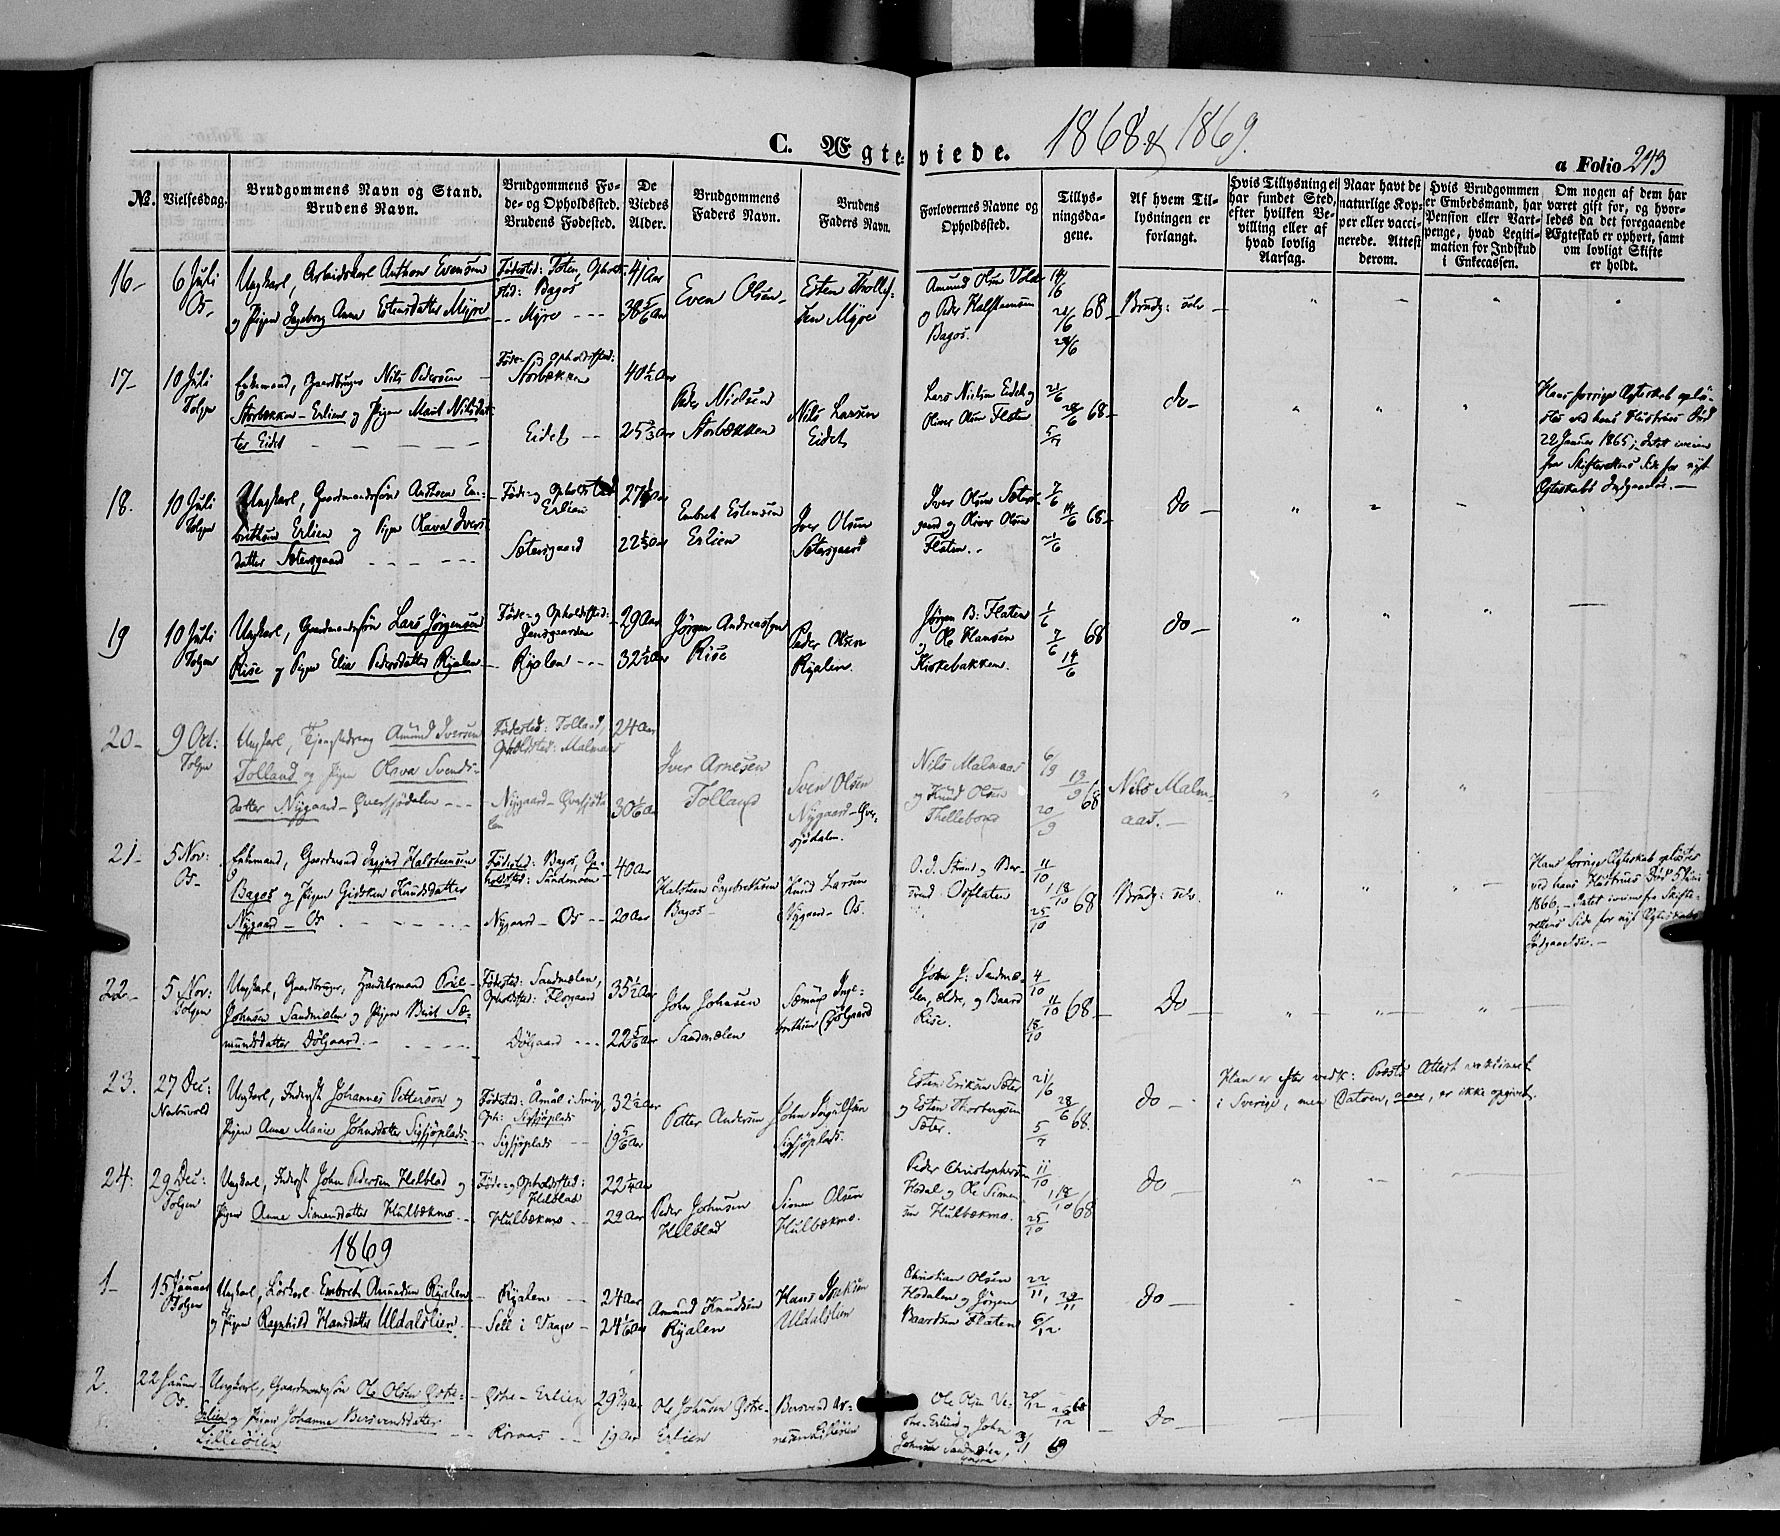 C. Ægteviede. 1868 & 1869.
a Folio 243
No.
Vielsesdag.
Brudgommens Navn og Stand.
Brudens Navn.
Brudgommens Fø-
de- og Opholdssted.
Brudens Fødested.
De
Viedes
Alder.
Brudgommens
Faders Navn.
Brudens
Faders Navn.
Forlovernes Navne og
Opholdssted.
Tillys-
ningsda-
gene.
Af hvem Til-
lysningen er
forlangt.
Hvis Tillysning ei
har fundet Sted,
efter hvilken Be-
villing eller af
hvad lovlig
Aarsag.
Naar havt de
naturlige Kop-
per eller vacci-
nerede. Attest
derom.
Hvis Brudgommen
er Embedsmand, har
Pension eller Vart-
penge, hvad Legiti-
mation for Indskud
i Enkecassen.
Om nogen af dem har
været gift før, og hvor-
ledes da det foregaaende
Ægteskab er ophørt, samt
om lovligt Skifte
er holdt.
16 6 Juli Os
Ungkarl, Arbeidskarl Anthon Evensen
og Pigen Ingeborg Anne Estensdatter Myre
Fødested: Toten, Ophold-
sted: Bagos
Myre
41 Aar
38 5/6 Aar
Even Olsen
Esten Thollef-
sen Myre
Amund Olsen
og Peder Halstensen
Bagos.
14/6 21/6 28/6 68
Brudg: selv
17 10 Juli Tolgen
Enkemand, Gaardbruger Nils Pedersen
Storbækken-Erlien og Pigen Marit Nilsdat-
ter Eidet
Føde- og Opholdssted:
Storbækken
Eidet
40 1/2 Aar
25 2/3 Aar
Peder Nielsen
Storbækken
Nils Larsen
Eidet
Lars Nielsen Eidet og
Oliver Olsen Flaten
21/6 28/6 5/7 68
do
Hans forrige Ægteskab oplø-
stes ved hans Hustrues Død
22 Januar 1865; Intet iveien
fra Skifterettens Side for nyt
Ægteskabs Indgaaelse.
18. 10 Juli Tolgen
Ungkarl, Gaardmandssøn Anthon Em-
bretsen Erlien og Pigen Olava Ivers-
datter Sætersgaard
Føde- og Opholdssted
Erlien
Sætersgaard
22 2/3 Aar
Embret Estensen
Erlien
Iver Olsen
Sætersgaard
Iver Olsen Sæters-
gaard og Oliver Olsen
Flaten.
7/6 14/6 21/6 68
do
19 10 Juli Tolgen
Ungkarl, Gaardmandssøn Lars Jørgensen
Rise og Pigen Elia Pedersdatter Ryalen
Føde- og Opholdssted:
Jensgaarden
Ryalen
29 Aar
32 1/2 Aar
Jørgen Andreassen
Rise
Peder Olsen
Ryalen.
Jørgen B: Flaten
og Ole Hansen
Kirkebakken.
1/6 7/6 14/6 68
do
20 9 Oct: Tolgen
Ungkarl, Tjenestedreng Amund Iversen
Tolland og Pigen Olava Svends-
datter Nygaard-Øversjødalen
Fødested: Tolland,
Opholdsted: Malmaas
Nygaard-Øversjøda-
len
24 Aar
30 1/6 Aar
Iver Arnesen
Tolland
Sven Olsen
Nygaard-Øver-
sjødalen.
Nils Malmaas
og Knud Olsen
Thellebond
6/9 13/9 20/9 68
Nils Malm-
aas.
21 5 Nov: Os
Enkemand, Gaardmand Halstensen
Bagos og Pigen Gidsken Knudsdatter
Nygaard-Os
Fødested: Bagos, Op-
holdsted: Sundmoen
Nygaard-Os
40 Aar
20 Aar
Halsten Ingebrethsen
Bagos
Knud Larsen
Nygaard-Os.
O. J. Strand og Ber-
svend Osflaten
11/10 18/10 25/10 68
Brudg: selv.
Hans forrige Ægteskab opløstes
ved hans Hustrues Død 5 Juni
1866. Intet iveien fra Skifte-
rettens Side for nyt Ægteskabs
Indgaaelse.
22 5 Nov: Tolgen
Ungkarl, Gaardbruger, Handelsmand Poul
Johnsen Sandmælen og Pigen Berit Sæ-
mundsdatter Dølgaard.
Fødested: Sandmælen,
Opholdsted: Florgaard
Dølgaard
35 1/2 Aar
22 5/6 Aar
John Johnsen
Sandmælen
Sæmund Inge-
brethsen Dølgaard
John J: Sandmæ-
len, ældre, og Baard
Rise.
4/10 11/10 18/10 68
Do
23. 27 Dec: Narbuvold
Ungkarl, Inderst Johannes Petterson og
Pigen Anne Marie Johnsdatter Sigsjøplads
Fødested: Åmål i Sverig
Oph: Sigsjøplads
Sigsjøplads
32 1/2 Aar
19 5/6 Aar
Petter Anderson
John Ingulfsen
Sigsjøplads.
Esten Eriksen Sæter
og Esten Thorbergsen
Sæter.
21/6 28/6 5/7 68.
do
Han er efter vedk: Præsts Attest vaccineret
i Sverige, men Datoen, naar, er ikke opgivet.
24. 29 Dec: Tolgen
Ungkarl, Inderst John Pedersen Helblad og
Pigen Anne Simensdatter Hulbækmo
Føde- og Opholdssted:
Helblad
Hulbækmo
22 1/4 Aar
22 Aar
Peder Johnsen
Helblad
Simen Olsen
Hulbækmo.
Peder Christophersen
Hodal og Ole Simen-
sen Hulbækmo.
11/10 18/10 25/10 68
do
1869
1 15 Januar Tolgen
Ungkarl, Løskarl Embret Amundsen Ryalen
og Pigen Ragnhild Hansdatter Uldalslien
Ryalen
Sell i Vaage
24 Aar
24 1/6 Aar
Amund Knudsen
Ryalen
Hans
Uldalslien
Christian Olsen
Hodalen og Jørgen
Baardsen Flaten
22/11 29/11 6/12
do
2. 22 Januar Os.
Ungkarl, Gaardmandssøn Ole Olsen Østre-
Erlien og Pigen Johanne Bersvendsdatter
Lilleøien
Østre-Erlien
Røraas
29 3/4 Aar
19 Aar
Ole Johnsen Østre-
Erlien
Bersvend Ar-
nesen Lilleøien
Ole Olsen Ve-
stre-Erlien og John
Johnsen Sandmælen,
yngre
20/12 68
3/1 69
do